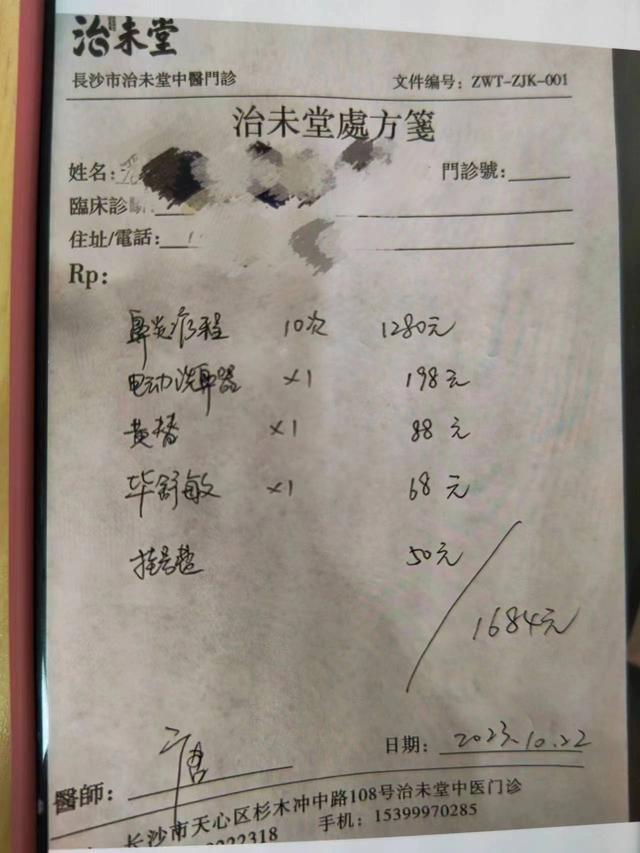 治未堂
長沙市治未堂中醫門診 文件编号：ZWT-ZJK-001
治未堂處方箋
姓名： 門診號：
臨床診
住址/電話：
Rp:
鼻炎疗程 10次 1280元
电动洗鼻器 ×1 198元
黄替 ×1 88元
毕舒敏 ×1 68元
挂号 50元
1684元
日期：2023.10.22
醫師：
长沙市天心区杉木冲中路108号治未堂中医门诊
222318 手机：15399970285